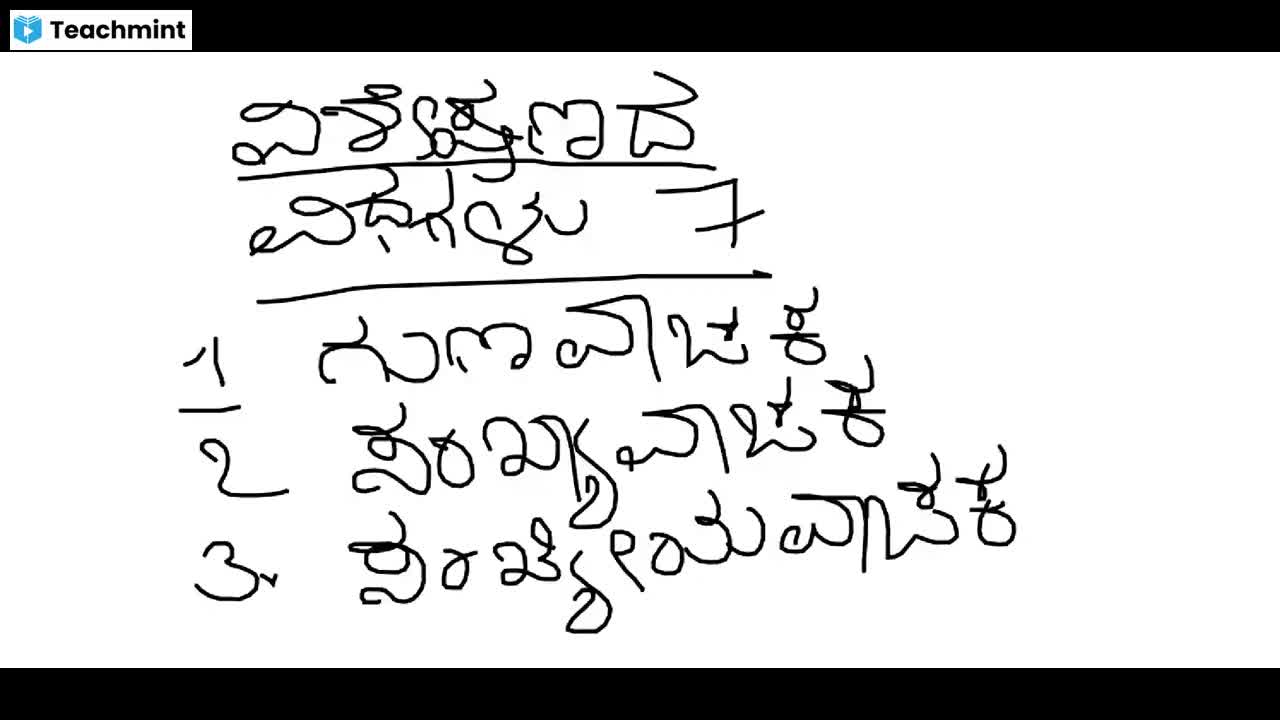 Teachmint
ವಿಶೇಷಣದ
ವಿಧಗಳು 7
1 ಗುಣವಾಚಕ
2 ಸಂಖ್ಯಾವಾಚಕ
3. ಸಂಖ್ಯೇಯವಾಚಕ